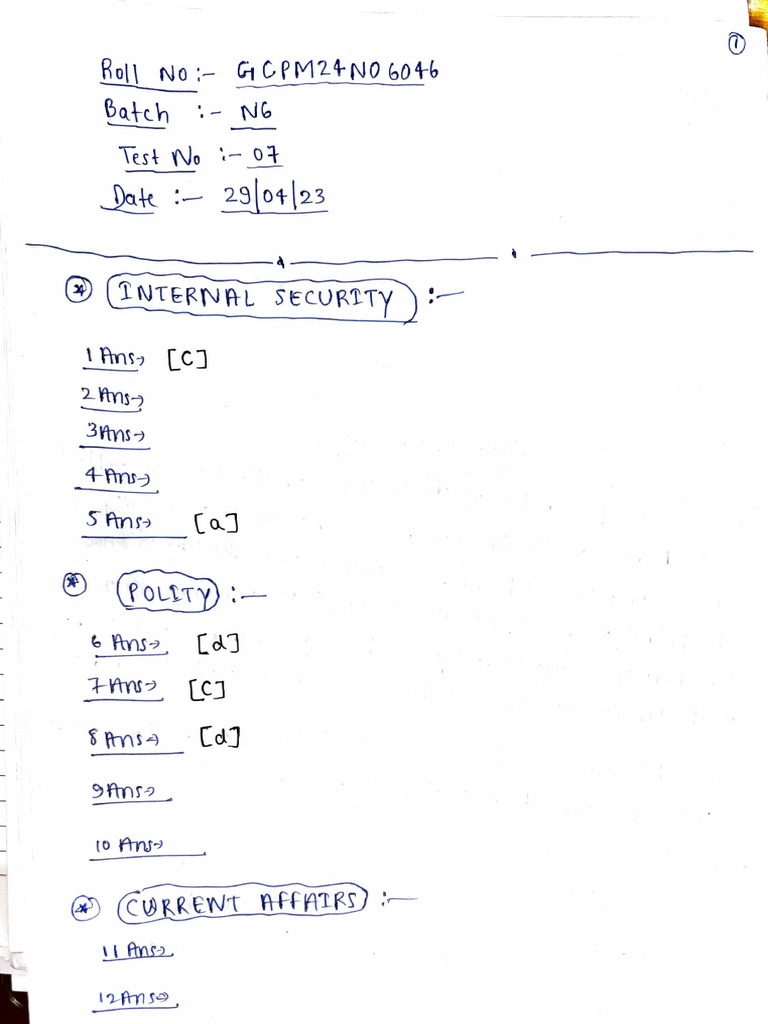 ①
Roll No :- GCPM24N06046
Batch :- N6
Test No :- 07
Date :- 29/04/23
* INTERNAL SECURITY :-
1 Ans→ [C]
2 Ans→
3 Ans→
4 Ans→
5 Ans→ [a]
* POLITY :-
6 Ans→ [d]
7 Ans→ [C]
8 Ans→ [d]
9 Ans→
10 Ans→
* CURRENT AFFAIRS :-
11 Ans→
12 Ans→